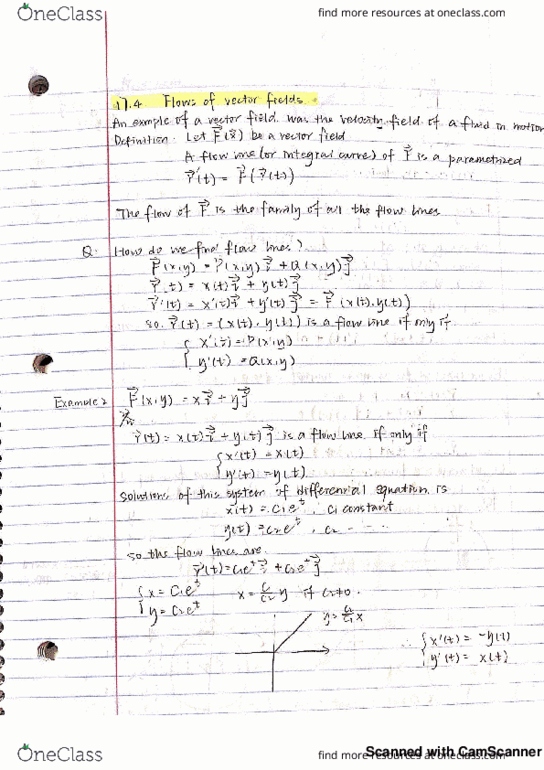 OneClass
find more resources at oneclass.com
17.4 Flows of vector fields.
An example of a vector field was the velocity field of a fluid in motion
Definition: Let F⃗(x⃗) be a vector field
A flow line (or integral curve) of F⃗ is a parametrized
r⃗'(t) = F⃗(r⃗(t))
The flow of F⃗ is the family of all the flow lines
Q: How do we find flow lines?
F⃗(x,y) = P(x,y)i⃗ + Q(x,y)j⃗
r⃗(t) = x(t)i⃗ + y(t)j⃗
r⃗'(t) = x'(t)i⃗ + y'(t)j⃗ = F⃗(x(t),y(t))
so r⃗(t) = (x(t), y(t)) is a flow line if only if
{ x'(t) = P(x,y)
{ y'(t) = Q(x,y)
Example 2 F⃗(x,y) = xi⃗ + yj⃗
r⃗(t) = x(t)i⃗ + y(t)j⃗ is a flow line if only if
{ x'(t) = x(t)
{ y'(t) = y(t)
solutions of this system of differential equation is
x(t) = c₁eᵗ, c₁ constant
y(t) = c₂eᵗ, c₂ - - - -
so the flow lines are
r⃗(t) = c₁eᵗi⃗ + c₂eᵗj⃗
{ x = c₁eᵗ x = c₁/c₂ y if c₂≠0.
{ y = c₂eᵗ
y = c₂/c₁ x
{ x'(t) = -y(t)
{ y'(t) = x(t)
Scanned with CamScanner
OneClass
find more resources at oneclass.com